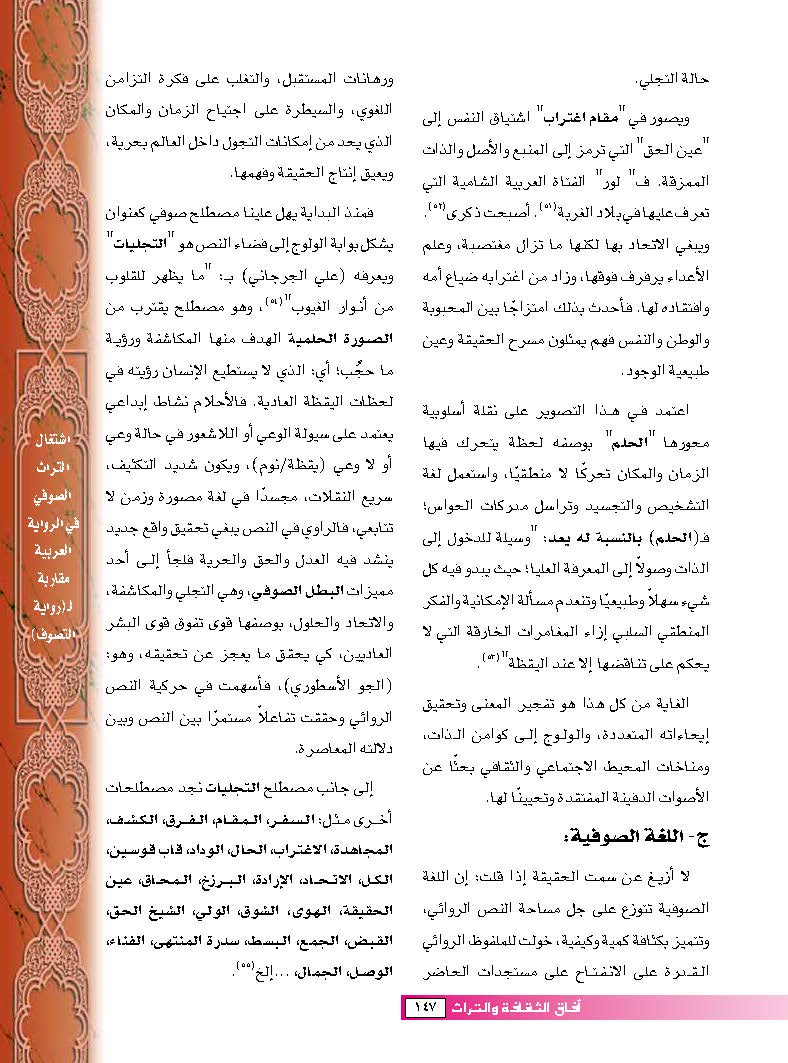 حالة التجلي.
ويصور في "مقام اغتراب" اشتياق النفس إلى
"عين الحق" التي ترمز إلى المنبع والأصل والذات
الممزقة. ف" لور" الفتاة العربية الشامية التي
تعرف عليها في بلاد الغربة(٥١). أصبحت ذكرى(٥٢).
ويبغي الاتحاد بها لكنها ما تزال مغتصبة، وعلم
الأعداء يرفرف فوقها، وزاد من اغترابه ضياع أمه
وافتقاده لها. فأحدث بذلك امتزاجًا بين المحبوبة
والوطن والنفس فهم يمثلون مسرح الحقيقة وعين
طبيعية الوجود.
اعتمد في هذا التصوير على نقلة أسلوبية
محورها "الحلم" بوصفه لحظة يتحرك فيها
الزمان والمكان تحركًا لا منطقيًا، واستعمل لغة
التشخيص والتجسيد وتراسل مدركات الحواس؛
فـ(الحلم) بالنسبة له يعد: "وسيلة للدخول إلى
الذات وصولاً إلى المعرفة العليا؛ حيث يبدو فيه كل
شيء سهلاً وطبيعيًا وتنعدم مسألة الإمكانية والفكر
المنطقي السلبي إزاء المغامرات الخارقة التي لا
يحكم على تناقضها إلا عند اليقظة"(٥٣).
الغاية من كل هذا هو تفجير المعنى وتحقيق
إيحاءاته المتعددة، والولوج إلى كوامن الذات،
ومناخات المحيط الاجتماعي والثقافي بحثًا عن
الأصوات الدفينة المفتقدة وتحيينًا لها.
ج- اللغة الصوفية:
لا أزيغ عن سمت الحقيقة إذا قلت: إن اللغة
الصوفية تتوزع على جل مساحة النص الروائي،
وتتميز بكثافة كمية وكيفية، خولت للملفوظ الروائي
القدرة على الانفتاح على مستجدات الحاضر
ورهانات المستقبل، والتغلب على فكرة التزامن
اللغوي، والسيطرة على اجتياح الزمان والمكان
الذي يحد من إمكانات التجول داخل العالم بحرية،
ويعيق إنتاج الحقيقة وفهمها.
فمنذ البداية يهل علينا مصطلح صوفي كعنوان
يشكل بوابة الولوج إلى فضاء النص هو "التجليات"
ويعرفه (علي الجرجاني) بـ: "ما يظهر للقلوب
من أنوار الغيوب"(٥٤)، وهو مصطلح يقترب من
الصورة الحلمية الهدف منها المكاشفة ورؤية
ما حجُب؛ أي: الذي لا يستطيع الإنسان رؤيته في
لحظات اليقظة العادية. فالأحلام نشاط إبداعي
يعتمد على سيولة الوعي أو اللاشعور في حالة وعي
أو لا وعي (يقظة/نوم)، ويكون شديد التكثيف،
سريع النقلات، مجسدًا في لغة مصورة وزمن لا
تتابعي، فالراوي في النص يبغي تحقيق واقع جديد
ينشد فيه العدل والحق والحرية فلجأ إلى أحد
مميزات البطل الصوفي، وهي التجلي والمكاشفة،
والاتحاد والحلول، بوصفها قوى تفوق قوى البشر
العاديين، كي يحقق ما يعجز عن تحقيقه، وهو:
(الجو الأسطوري)، فأسهمت في حركية النص
الروائي وحققت تفاعلاً مستمرًا بين النص وبين
دلالته المعاصرة.
إلى جانب مصطلح التجليات نجد مصطلحات
أخرى مثل: السفر، المقام، الفرق، الكشف،
المجاهدة، الاغتراب، الحال، الوداد، قاب قوسين،
الكل، الاتحاد، الإرادة، البرزخ، المحاق، عين
الحقيقة، الهوى، الشوق، الولي، الشيخ الحق،
القبض، الجمع، البسط، سدرة المنتهى، الفناء،
الوصل، الجمال، ...إلخ(٥٥).
اشتغال
التراث
الصوفي
في الرواية
العربية
مقاربة
لـ(رواية
التصوف)
آفاق الثقافة والتراث ١٤٧